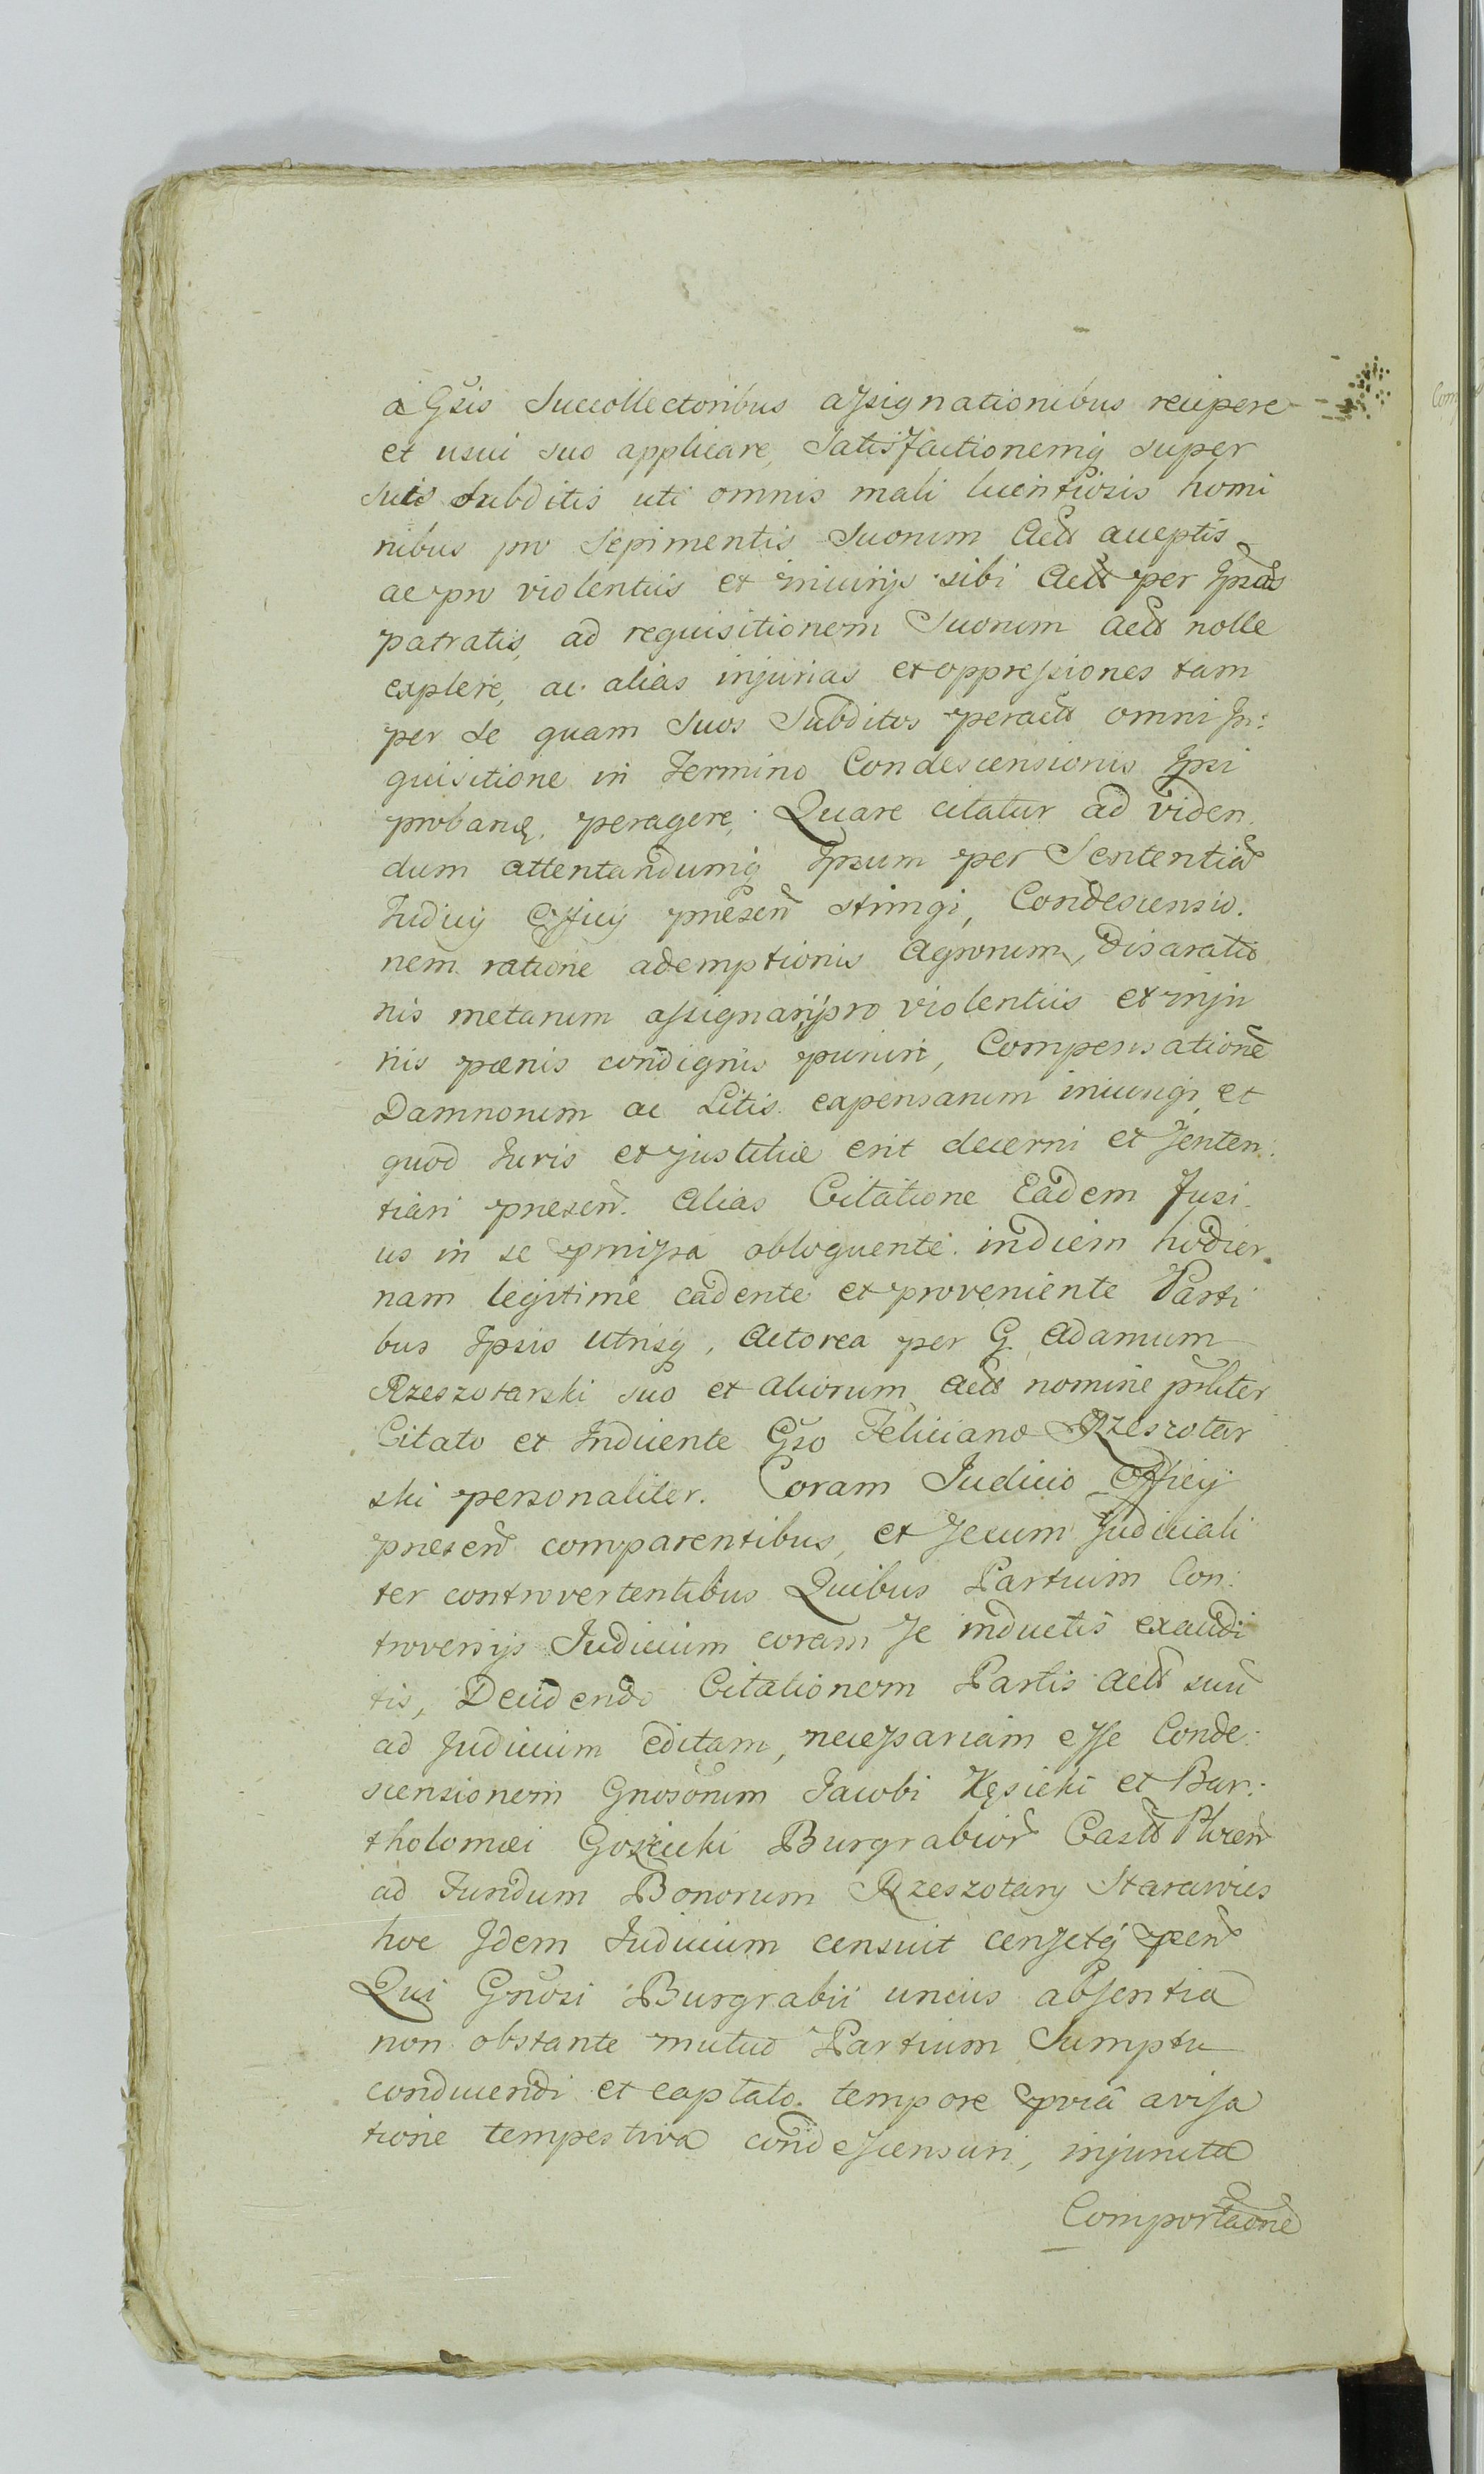 a Gsis Succollectoribus assignationibus recipere
et usui suo applicare, Satisfactionemq super
suis Subditis uti omnis mali licentiosis homi
nibus pro Sepimentis Suorum Act acceptis
ac pro violentiis et iniurijs sibi Act per
patratis, ad requisitionem Suorum Act nolle
explere, ac alias injurias et oppressiones tam
per se quam Suos Subditos peract omni In:
quisitione in Termino Condescensionis Ipsi
proban̄, peragere, Quare citatur ad viden
dum attentandumq Ipsum per Sententiā
Iudicij Officij presen̄ stringi, Condescensio.
nem ratione ademptionis Agrorum, Disaratio
nis metarum assignari, pro violentiis et inju
riis pœnis condignis puniri, Compensationē
Damnorum ac Litis expensarum iniungi et
quod Iuris et justitiæ erit decerni et senten:
tiari presen̄. Alias Citatione Eadem fusi.
us in se pmissa obloquente in diem hodier.
nam legitime cadente et proveniente Parti
bus Ipsis utrisq, Actorea per G. Adamum
Rzeszotarski suo et aliorum Act nomine prliter
Citato et Inducente Gso Feliciano Rzeszotar
ski personaliter. Coram Iudicio Officij
presen̄ comparentibus, et secum Judiciali
ter controvertentibus Quibus Partium Con:
troversijs Iudicium coram se inductis exaudi
tis, Decidendo Citationem Partis Act suū
ad Judicium editam, necessariam esse Conde:
scensionem Gnosorum Jacobi Kęsicki et Bar:
tholomæi Gozicki Burgrabior̄ Cast Plocen̄
ad Fundum Bonorum Rzeszotary Starawies
hoc Idem Iudicium censuit censetq pen̄
Qui Gnosi Burgrabii unius absentia
non obstante mutuo Partium Sumptu
conducendi et captato tempore prviâ avisa
tione tempestiva condescensuri, injuncta
Comportaonē